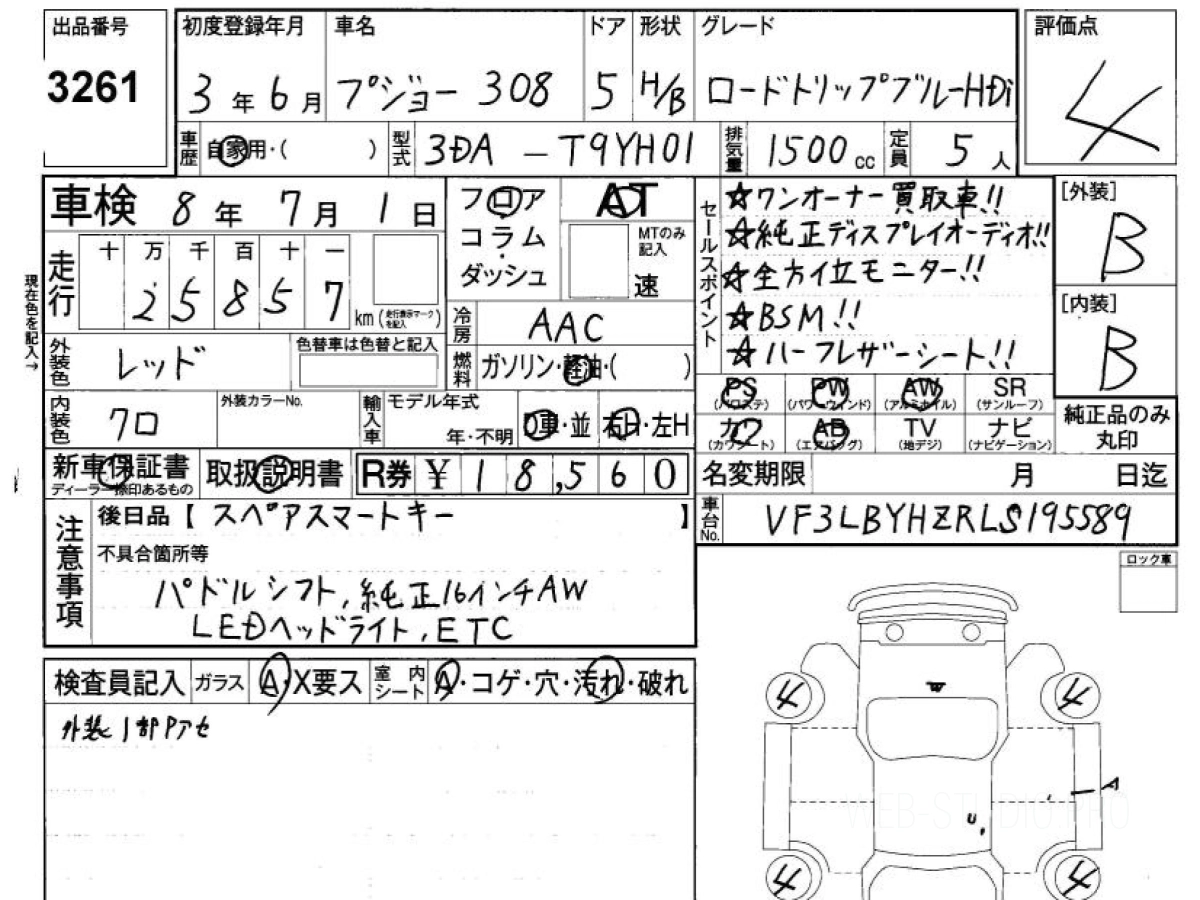 出品番号 初度登録年月 車名 ドア 形状 グレード 評価点
3261 3年6月 プジョー 308 5 H/B ロードトリップブルーHDi 4
車歴 自家用・( ) 型式 3DA-T9YH01 排気量 1500cc 定員 5人
車検 8年7月1日 フロア AT セールスポイント ☆ワンオーナー買取車!! [外装]
コラム MTのみ記入 ☆純正ディスプレイオーディオ!! B
走行 十 万 千 百 十 一 ダッシュ 速 ☆全方位モニター!!
現在色を記入→ 2 5 8 5 7 km (走行表示マークを記入) 冷房 AAC ☆BSM!! [内装]
外装色 レッド 色替車は色替と記入 燃料 ガソリン・軽油・( ) ☆ハーフレザーシート!! B
PS (パワステ) PW (パワーウインド) AW (アルミホイル) SR (サンルーフ)
内装色 クロ 外装カラーNo. 輸入車 モデル年式 年・不明 D車・並 右H・左H カワ (カワシート) AB (エアバッグ) TV (地デジ) ナビ (ナビゲーション) 純正品のみ丸印
新車保証書 ディーラー捺印あるもの 取扱説明書 R券 ¥ 18,560 名変期限 月 日迄
注意事項 後日品【 スペアスマートキー 】 車台No. VF3LBYHZRLS195589
不具合箇所等 ロック車
パドルシフト,純正16インチAW
LEDヘッドライト,ETC
検査員記入 ガラス A・X要ス 室内シート A・コゲ・穴・汚れ・破れ
外装1部Pアセ
W
4 4
A
U,
WEB-STUDIO.PRO
4 4